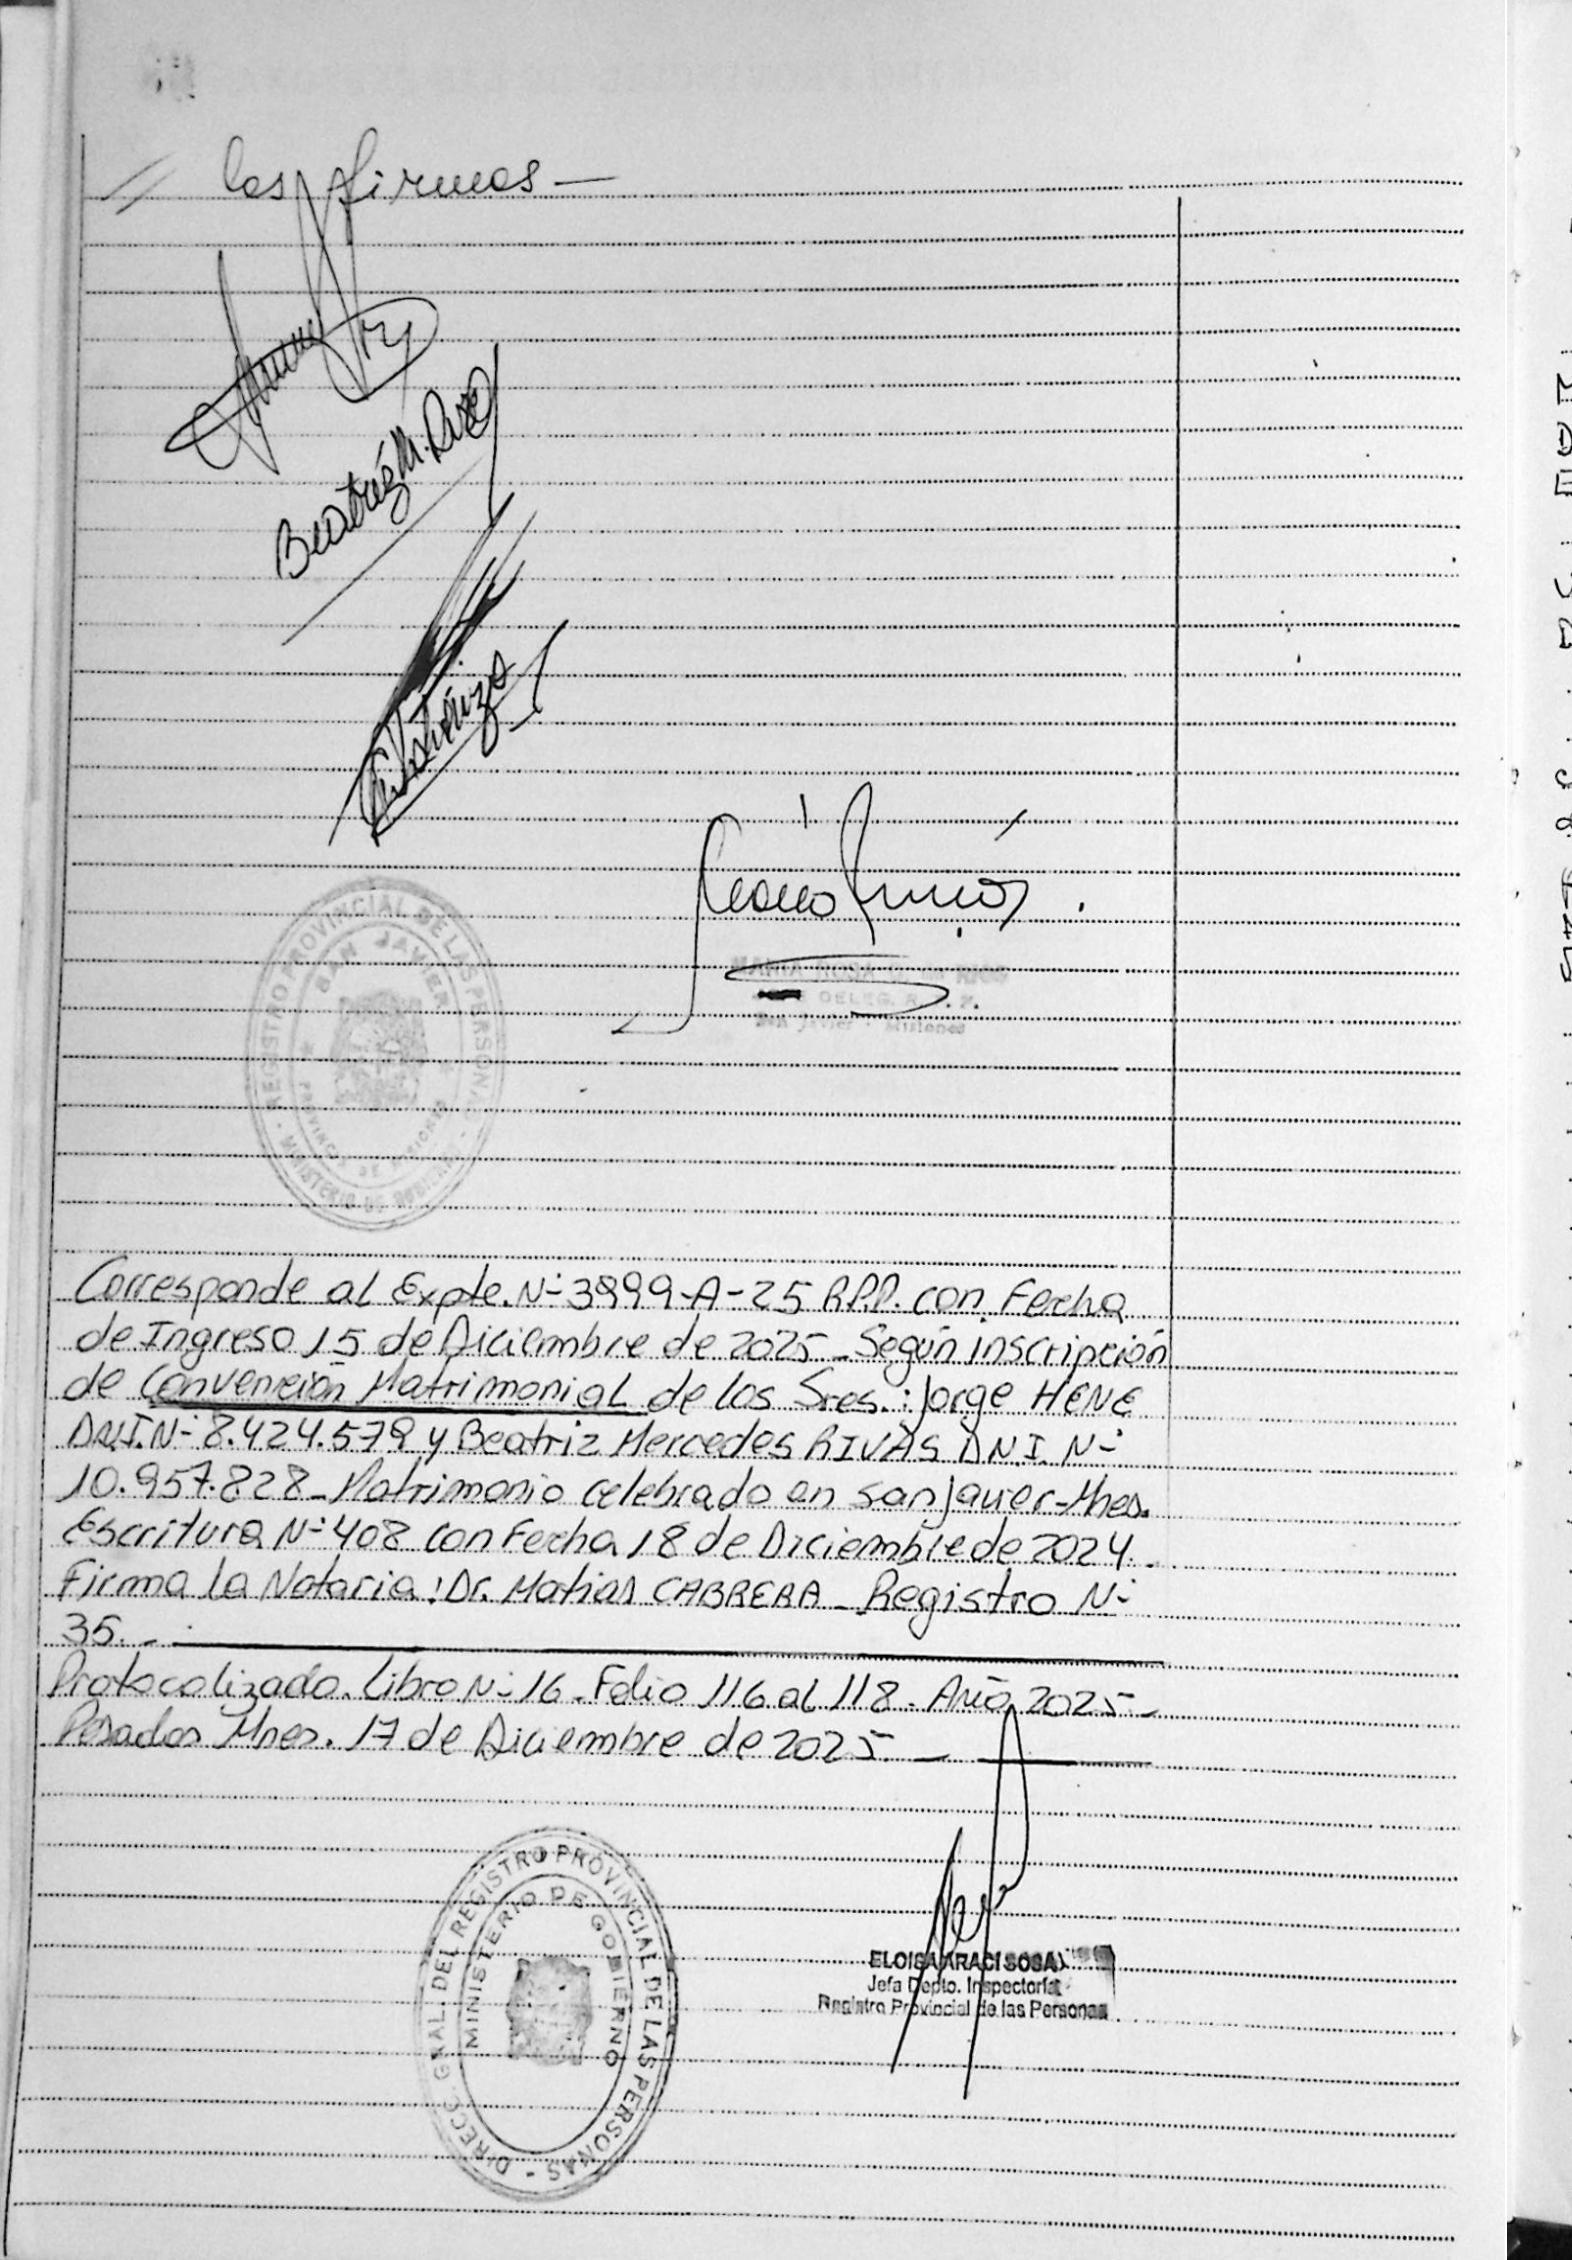 // las firmas —
Beatriz M. Rivas
REGISTRO PROVINCIAL DE LAS PERSONAS
SAN JAVIER
PROVINCIA DE MISIONES
MINISTERIO DE GOBIERNO
MARIA ROSA RIOS
DELEG. R. P.
San Javier - Misiones
Corresponde al Expte. N- 3999-A-25 R.P.P. con Fecha
de Ingreso 15 de Diciembre de 2025 - Según inscripción
de Convención Matrimonial de los Sres.: Jorge HENE
D.N.I. N- 8.424.579 y Beatriz Mercedes RIVAS D.N.I. N-
10.957.828 - Matrimonio celebrado en San Javier - Mnes.
Escritura N- 408 con Fecha 18 de Diciembre de 2024 -
Firma la Notaria: Dr. Matias CABRERA - Registro N-
35. -
Protocolizado. Libro N- 16 - Folio 116 al 118 - Año 2025 -
Posadas Mnes. 17 de Diciembre de 2025 -
DIRECC. GRAL. DEL REGISTRO PROVINCIAL DE LAS PERSONAS -
MINISTERIO DE GOBIERNO
ELOISA ARACI SOSA
Jefa Depto. Inspectoría
Registro Provincial de las Personas